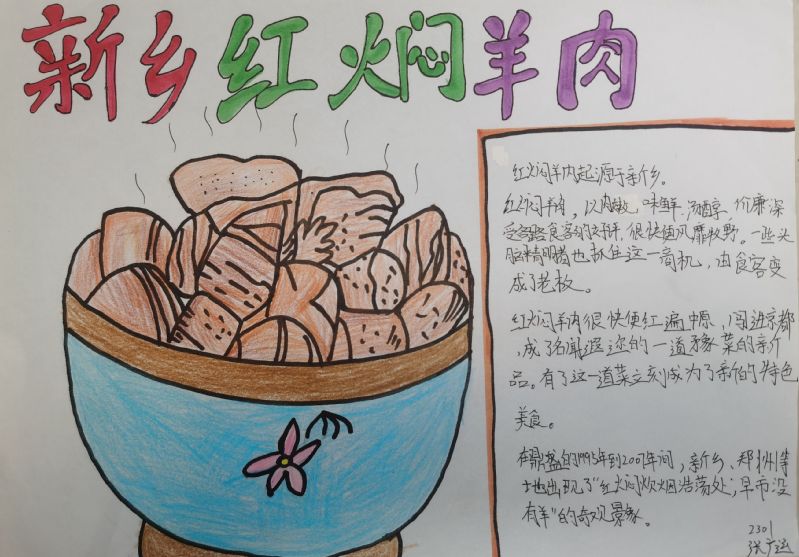 新乡红焖羊肉
红焖羊肉起源于新乡。
红焖羊肉，以肉嫩、味鲜、汤醇、价廉深
受食客的好评，很快便风靡牧野。一些头
脑精明者也抓住这一商机，由食客变
成了老板。
红焖羊肉很快便红遍中原，闯进京都
，成了名闻遐迩的一道豫菜的新
品。有了这一道菜立刻成为了新的特色
美食。
在鼎盛的1995年到2001年间，新乡、郑州等
地出现了"红焖炊烟浩荡处，早市没
有羊"的奇观景象。
2301